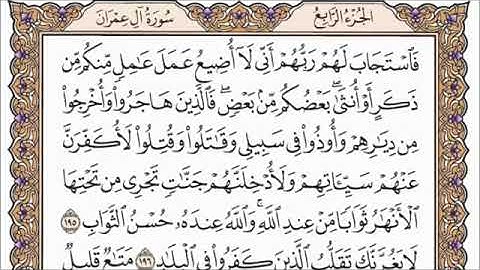 سُورَةُ آلِ عِمْرَانَ الجُزْءُ الرَّابِعُ
فَٱسْتَجَابَ لَهُمْ رَبُّهُمْ أَنِّي لَآ أُضِيعُ عَمَلَ عَٰمِلٍ مِّنكُم مِّن
ذَكَرٍ أَوْ أُنثَىٰۖ بَعْضُكُم مِّنۢ بَعْضٖۖ فَٱلَّذِينَ هَاجَرُواْ وَأُخْرِجُواْ
مِن دِيَٰرِهِمْ وَأُوذُواْ فِي سَبِيلِي وَقَٰتَلُواْ وَقُتِلُواْ لَأُكَفِّرَنَّ
عَنْهُمْ سَيِّـَٔاتِهِمْ وَلَأُدْخِلَنَّهُمْ جَنَّٰتٖ تَجْرِي مِن تَحْتِهَا
ٱلْأَنْهَٰرُ ثَوَابٗا مِّنْ عِندِ ٱللَّهِۚ وَٱللَّهُ عِندَهُۥ حُسْنُ ٱلثَّوَابِ ١٩٥
لَا يَغُرَّنَّكَ تَقَلُّبُ ٱلَّذِينَ كَفَرُواْ فِي ٱلْبِلَٰدِ ١٩٦ مَتَٰعٞ قَلِيلٞ